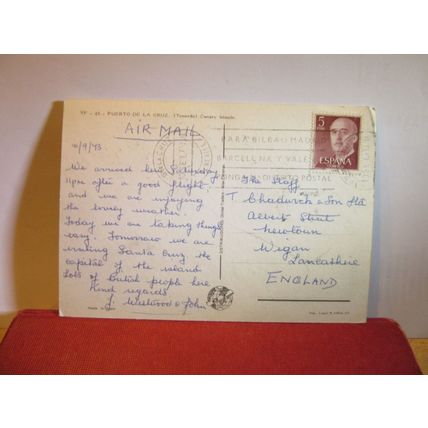 YF - 45 - PUERTO DE LA CRUZ. (Tenerife) Canary Islands
AIR MAIL
We arrived here Saturday
4pm after a good flight
and we are enjoying
the lovely weather.
Today we are taking things
easy. Tomorrow we are
visiting Santa Cruz the
capital of the island
Lots of British people here
Kind regards.
J. Westwood & John
5
ESPAÑA
PARA BILBAO MADRID
BARCELONA Y VALENCIA
PONGA DISTRITO POSTAL
The Staff
T. Chadwick & Son Ltd
Albert Street
Newtown
Wigan
Lancashire
ENGLAND